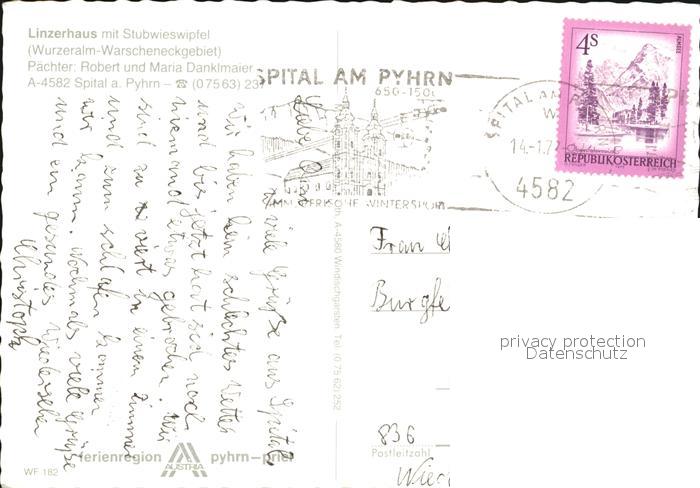 Linzerhaus mit Stubwieswipfel
(Wurzeralm-Warscheneckgebiet)
Pächter: Robert und Maria Danklmaier
A-4582 Spital a. Pyhrn – ☎ (0 75 63) 237
SPITAL AM PYHRN
650-150
WINTERSPORT
SPITAL AM P
14.-1.77
4582
4S
ALMSEE
REPUBLIK ÖSTERREICH
Liebe
viele Grüße aus Spital.
Wir haben kein schlechtes Wetter
und bis jetzt hat sich noch
niemand etwas gebrochen. Wir
sind zu viert in einem Zimmer
und zum schlafen kommen
wir kaum. Nochmals viele Grüße
und ein gesundes Wiedersehen
Christoph
A-4580 Windischgarsten Tel. (0 75 62) 252
Frau
Burgfe
privacy protection
Datenschutz
836
Postleitzahl
Wien
ferienregion AUSTRIA pyhrn–priel
WF 182